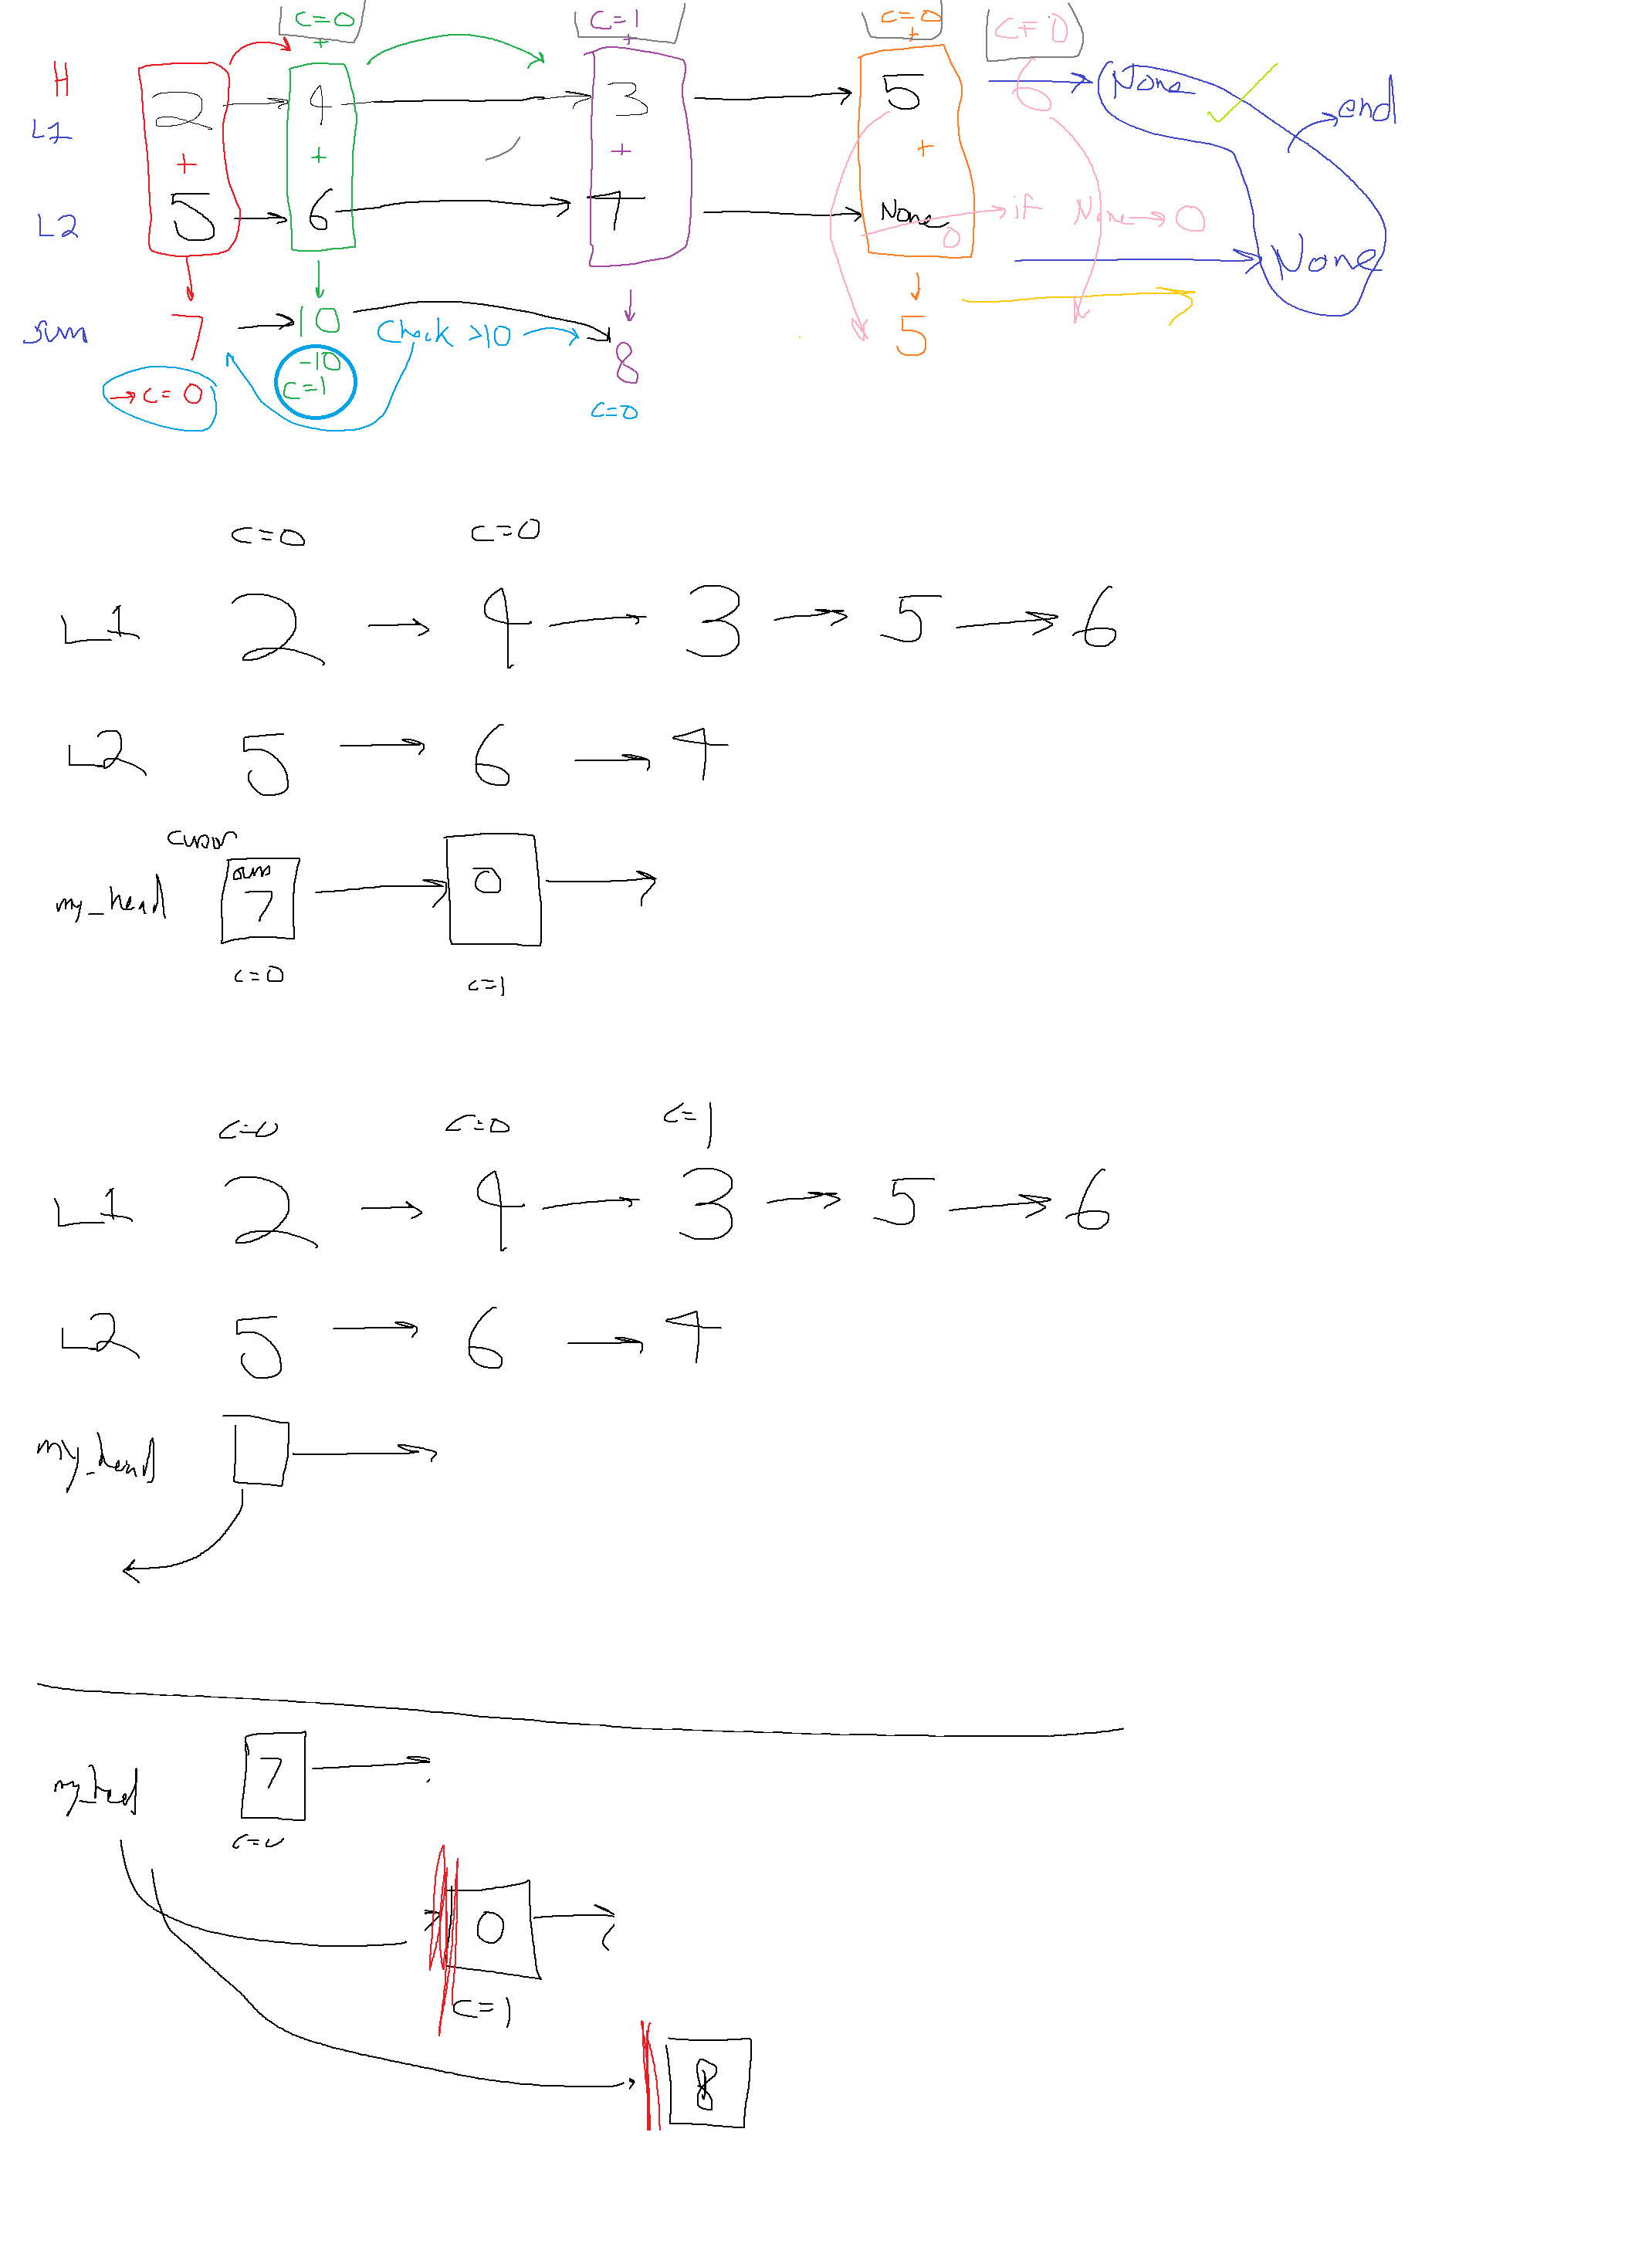 c=0 c=1 c=0 c=0
+ + +
H 2 4 3 5 6 None end
L1
+ + + +
L2 5 6 7 None 0 if None → 0
None
sum 7 10 Check >10 8 5
→ c=0 -10
c=1 c=0
c=0 c=0
L1 2 → 4 → 3 → 5 → 6
L2 5 → 6 → 4
cursor
my_head sum 7 → 0 →
c=0 c=1
c=0 c=0 c=1
L1 2 → 4 → 3 → 5 → 6
L2 5 → 6 → 4
my_head →
my_head 7 →
c=0
0 →
c=1
8